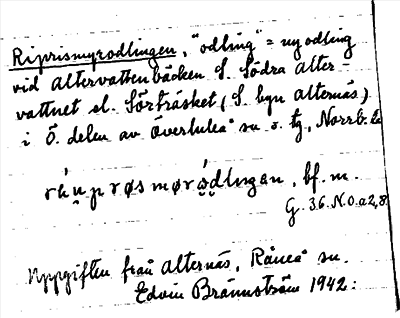 Riprismyrodlingen, "odling" = nyodling
vid Altervattenbäcken S. Södra Alter-
vattnet el. Sörträsket (S. byn Alternäs)
i Ö. delen av Överluleå sn. o. tg, Norrb. l.
bf. m.
G. 36. N.O. a 2,8
Uppgiften från Alternäs, Råneå sn.
Edvin Brännström 1942: